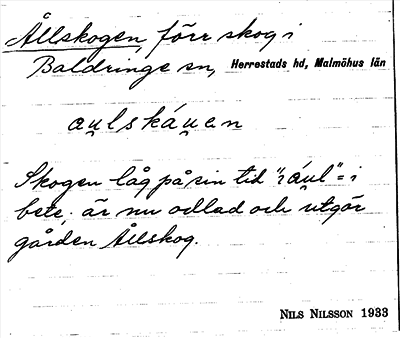 Ållskogen, förr skog i
Baldringe sn, Herrestads hd, Malmöhus län
au̯lskáu̯ɐn
Skogen låg på sin tid "i áu̯l" = i
bete; är nu odlad och utgör
gården Ållskog.
NILS NILSSON 1933